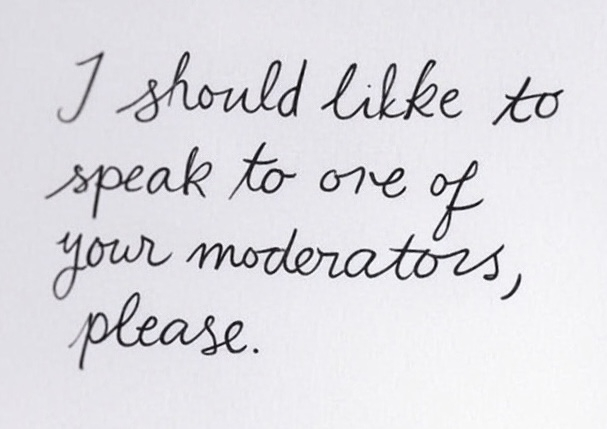 I should likke to
speak to ore of
your moderators,
please.